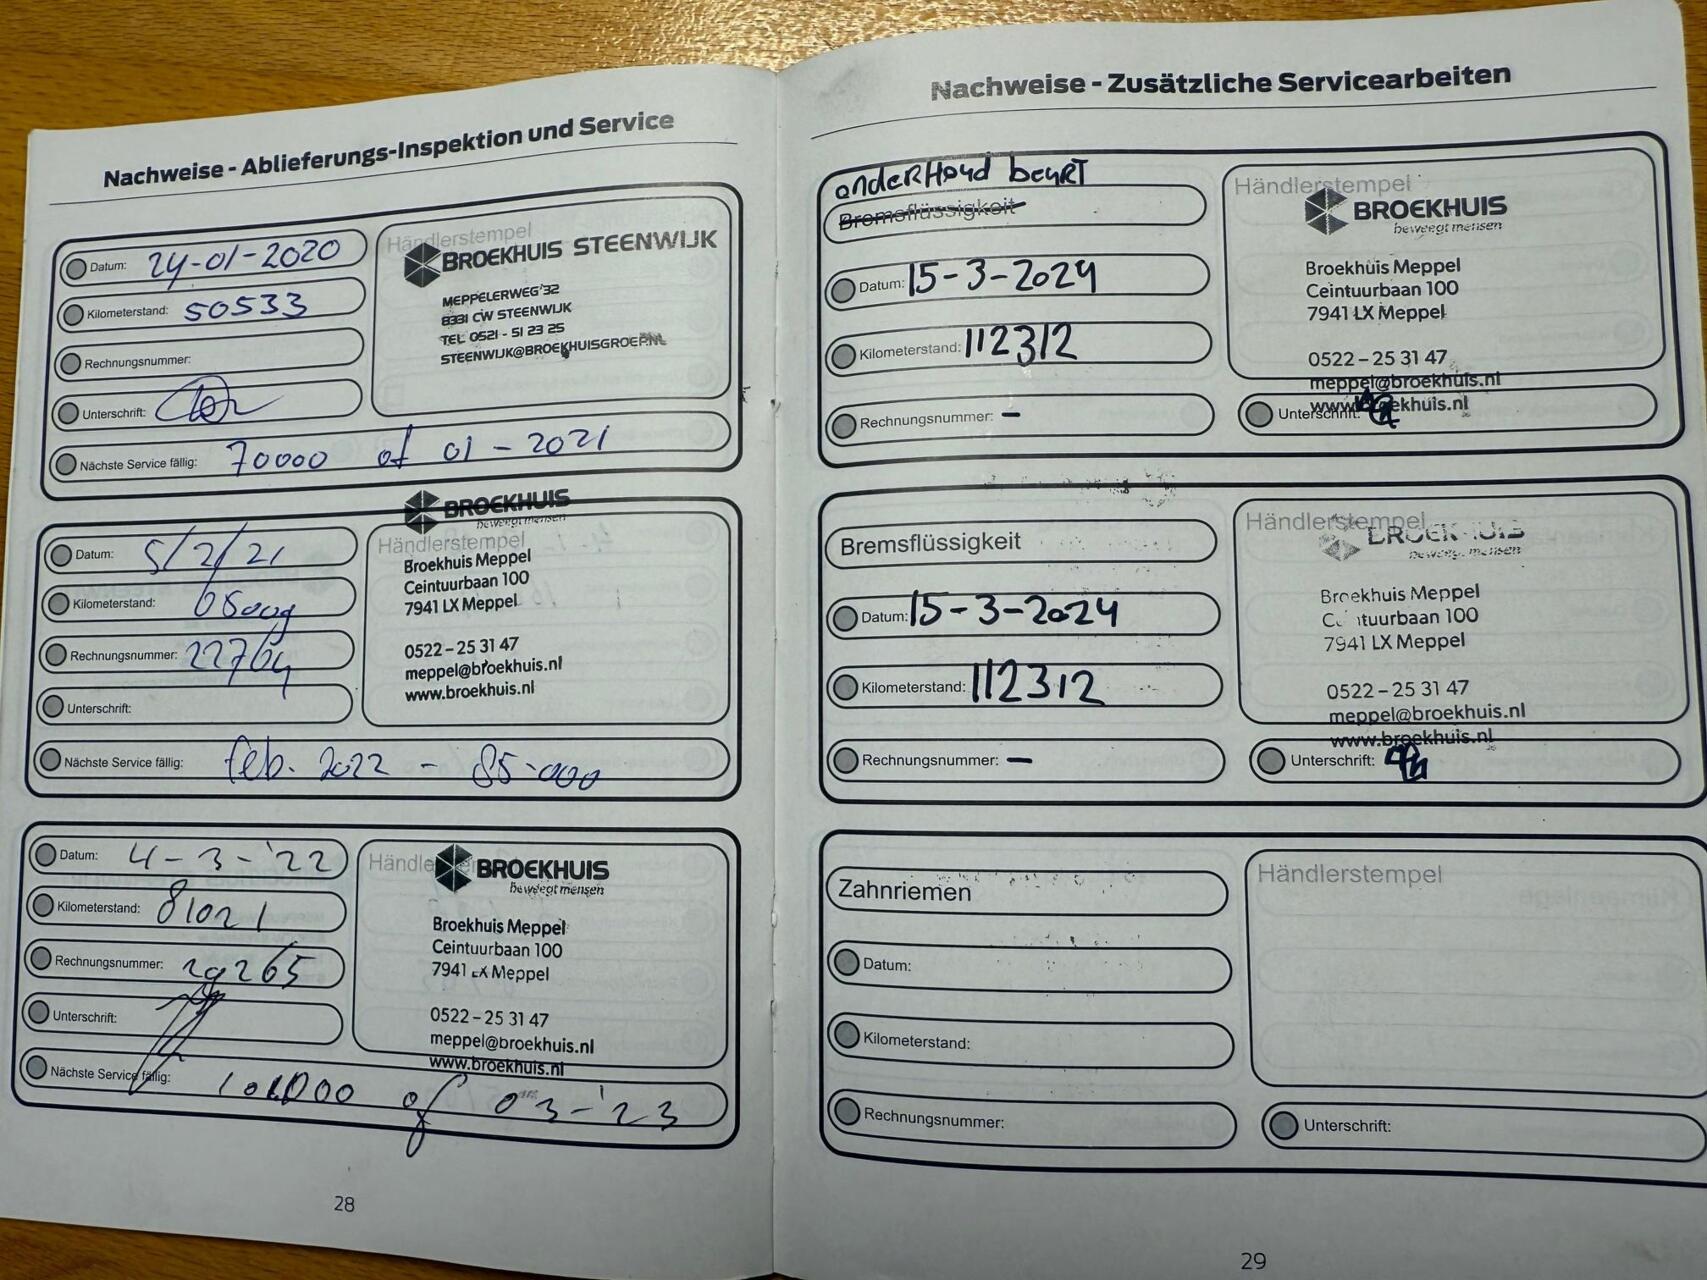 Nachweise - Ablieferungs-Inspektion und Service
Datum: 24-01-2020
Kilometerstand: 50533
Rechnungsnummer:
Unterschrift:
Nächste Service fällig: 70000 of 01 - 2021
Händlerstempel
BROEKHUIS STEENWIJK
MEPPELERWEG 32
8331 CW STEENWIJK
TEL 0521 - 51 23 25
STEENWIJK@BROEKHUISGROEP.NL
Datum: 5/2/21
Kilometerstand:
Rechnungsnummer: 22764
Unterschrift:
Nächste Service fällig: feb. 2022 - 85.000
BROEKHUIS
beweegt mensen
Händlerstempel
Broekhuis Meppel
Ceintuurbaan 100
7941 LX Meppel
0522 - 25 31 47
meppel@broekhuis.nl
www.broekhuis.nl
Datum: 4-3-'22
Kilometerstand: 81021
Rechnungsnummer: 29265
Unterschrift:
Nächste Service fällig: 101000 of 03-'23
Händlerstempel
BROEKHUIS
beweegt mensen
Broekhuis Meppel
Ceintuurbaan 100
7941 LX Meppel
0522 - 25 31 47
meppel@broekhuis.nl
www.broekhuis.nl
28
Nachweise - Zusätzliche Servicearbeiten
onderHoud beurT
Bremsflüssigkeit
Datum: 15-3-2024
Kilometerstand: 112312
Rechnungsnummer: -
Händlerstempel
BROEKHUIS
beweegt mensen
Broekhuis Meppel
Ceintuurbaan 100
7941 LX Meppel
0522 - 25 31 47
meppel@broekhuis.nl
www.broekhuis.nl
Unterschrift:
Bremsflüssigkeit
Datum: 15-3-2024
Kilometerstand: 112312
Rechnungsnummer: -
Händlerstempel
BROEKHUIS
beweegt mensen
Broekhuis Meppel
Ceintuurbaan 100
7941 LX Meppel
0522 - 25 31 47
meppel@broekhuis.nl
www.broekhuis.nl
Unterschrift:
Zahnriemen
Datum:
Kilometerstand:
Rechnungsnummer:
Händlerstempel
Unterschrift:
29